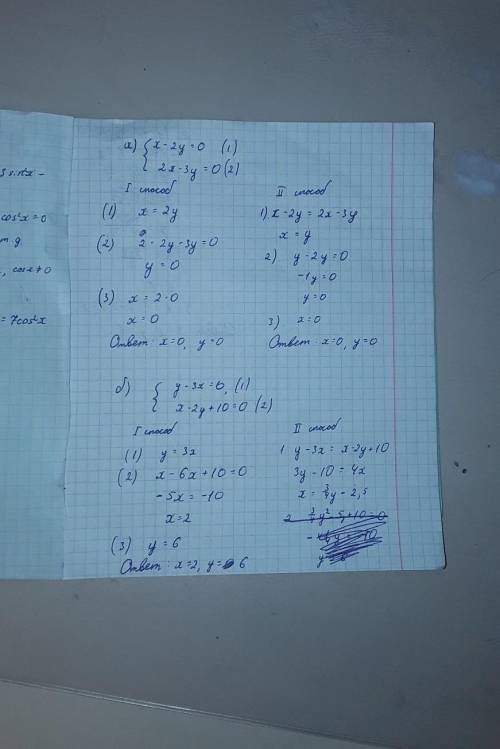 3 sin²x -
cos²x = 0
т.д.
, cosx ≠ 0
= 7cos²x
а) { x - 2y = 0 (1)
2x - 3y = 0 (2)
I способ
(1) x = 2y
(2) 2 · 2y - 3y = 0
y = 0
(3) x = 2 · 0
x = 0
Ответ: x = 0, y = 0
II способ
1) x - 2y = 2x - 3y
x = y
2) y - 2y = 0
-1y = 0
y = 0
3) x = 0
Ответ: x = 0, y = 0
б) { y - 3x = 0, (1)
x - 2y + 10 = 0 (2)
I способ
(1) y = 3x
(2) x - 6x + 10 = 0
-5x = -10
x = 2
(3) y = 6
Ответ: x = 2, y = 6
II способ
1 y - 3x = x - 2y + 10
3y - 10 = 4x
x = ¾y - 2,5